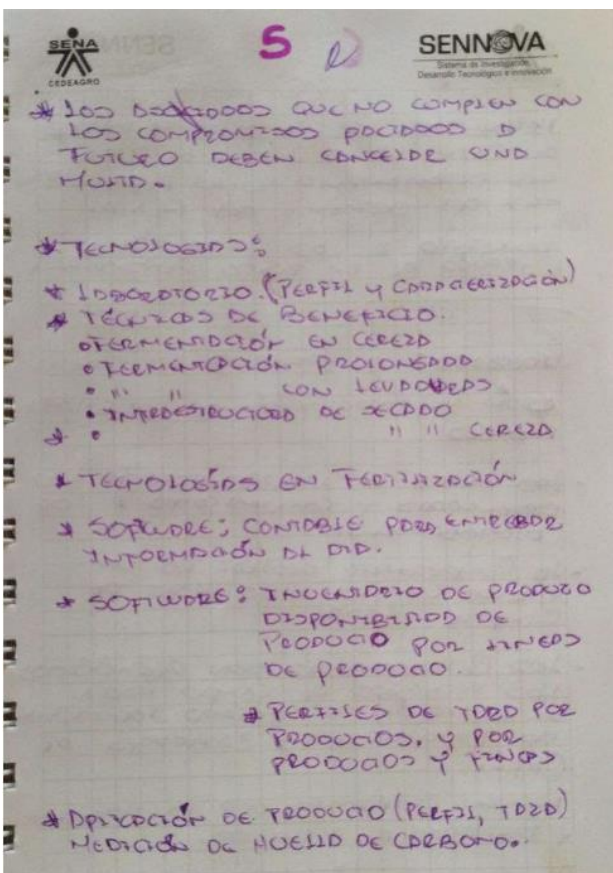 SENA
CEDEAGRO
S
SENNOVA
Sistema de Investigación,
Desarrollo Tecnológico e Innovación
* LOS ASOCIADOS QUE NO CUMPLEN CON
LOS COMPROMISOS PACTADOS A
FUTURO DEBEN CANCELAR UNA
MULTA.
* TECNOLOGIAS:
* LABORATORIO. (PERFIL Y CARACTERIZACIÓN)
* TÉCNICAS DE BENEFICIO.
• FERMENTACIÓN EN CEREZA
• FERMENTACIÓN PROLONGADA
• " " CON LEVADURAS.
• INFRAESTRUCTURA DE SECADO
* • " " CEREZA
* TECNOLOGÍAS EN FERTILIZACIÓN
* SOFTWARE: CONTABLE PARA ENTREGAR
INFORMACIÓN AL DIA.
* SOFTWARE: INVENTARIO DE PRODUCTO
DISPONIBILIDAD DE
PRODUCTO POR LINEAS
DE PRODUCTO.
* PERFILES DE TAZA POR
PRODUCTOS, Y POR
PRODUCTOS Y FINCAS
* APLICACIÓN DE PRODUCTO (PERFIL, TAZA)
MEDICIÓN DE HUELLA DE CARBONO.